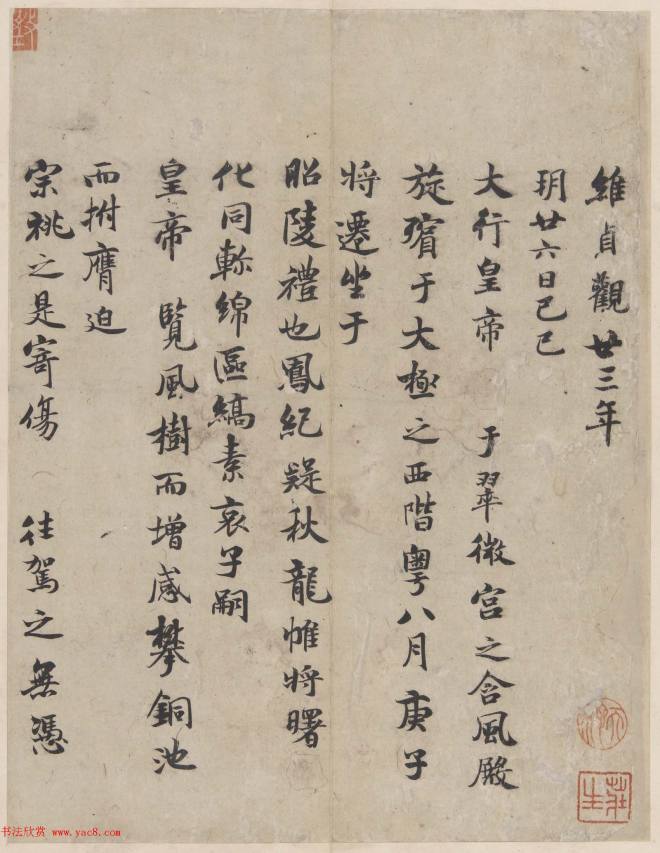 維貞觀廿三年
玥廿六日己巳
大行皇帝 于翠微宮之含風殿
旋殯于大極之西階粵八月庚子
将遷坐于
昭陵禮也鳳紀疑秋龍帷将曙
化同軫綿區縞素哀子嗣
皇帝 覽風樹而增感攀銅池
而拊膺迫
宗祧之是寄傷 往駕之無憑
书法欣赏 www.yac8.com